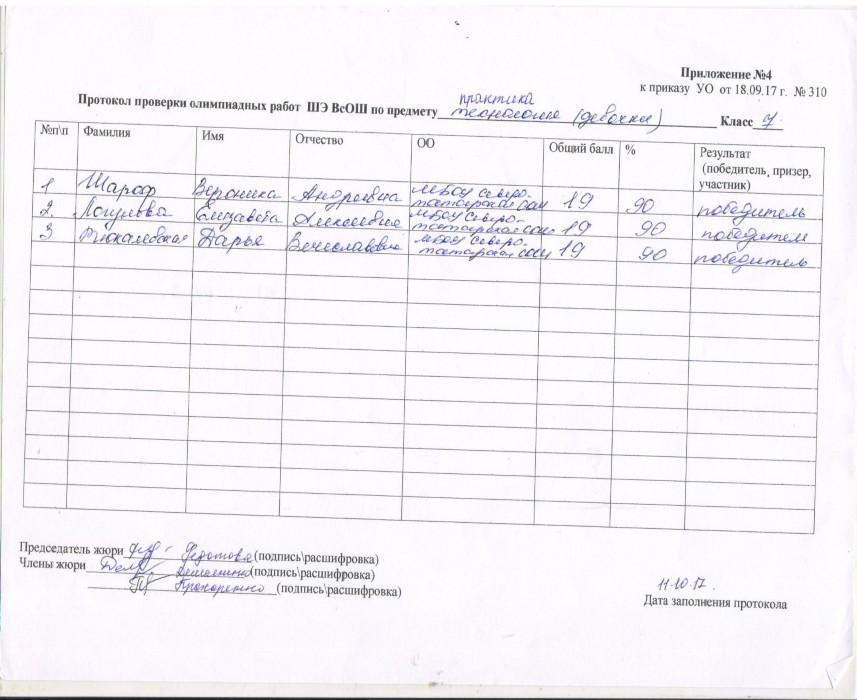 Приложение №4
к приказу УО от 18.09.17 г. № 310
практика
Протокол проверки олимпиадных работ ШЭ ВсОШ по предмету технология (девочки) Класс 7
№п\п Фамилия Имя Отчество ОО Общий балл % Результат
(победитель, призер,
участник)
1 Шароф Вероника Андреевна МБОУ Северо-
татарская сош 19 90 победитель
2. Елизавета Алексеевна МБОУ Северо-
татарская сош 19 90 победитель
3 Дарья Вячеславовна МБОУ Северо-
татарская сош 19 90 победитель
Председатель жюри Федотова (подпись\расшифровка)
Члены жюри (подпись\расшифровка)
Прокоренко (подпись\расшифровка)
11.10.17.
Дата заполнения протокола